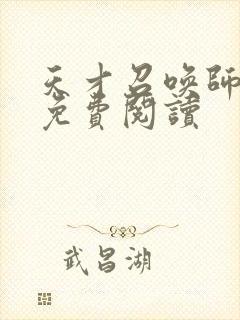 天才召喚師
免費閱讀
武昌湖